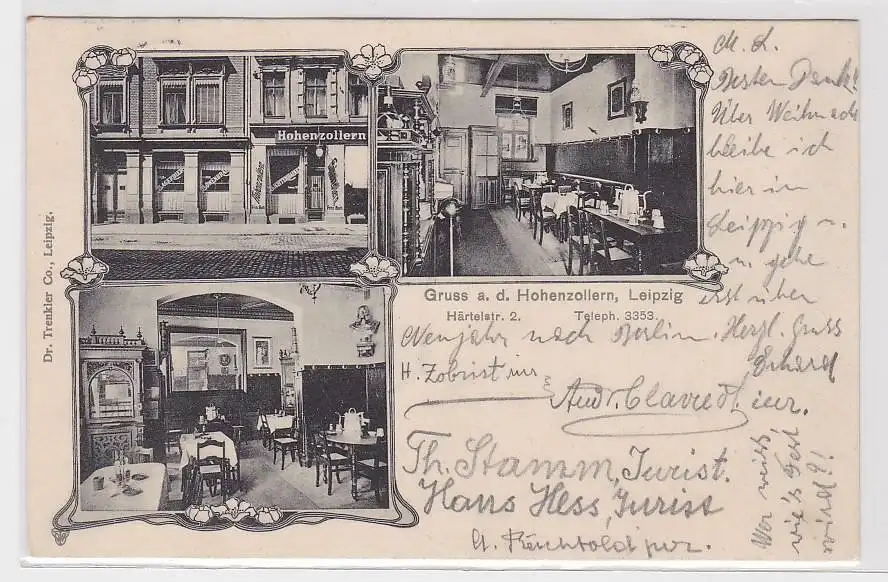 Hohenzollern
Dr. Trenkler Co., Leipzig.
Gruss a. d. Hohenzollern, Leipzig
Härtelstr. 2. Teleph. 3353.
M. L.
Besten Dank!
Über Weihnacht
bleibe ich
hier in
Leipzig u.
u. gehe
erst über
Neujahr nach Berlin. Herzl. Gruss
Erhard
H. Zobrist iur
Andr. Clavuot, iur.
Th. Stamm, Jurist.
Hans Hess, Jurist
A. jur.
Wer weiss,
wie's Geld
wird?!